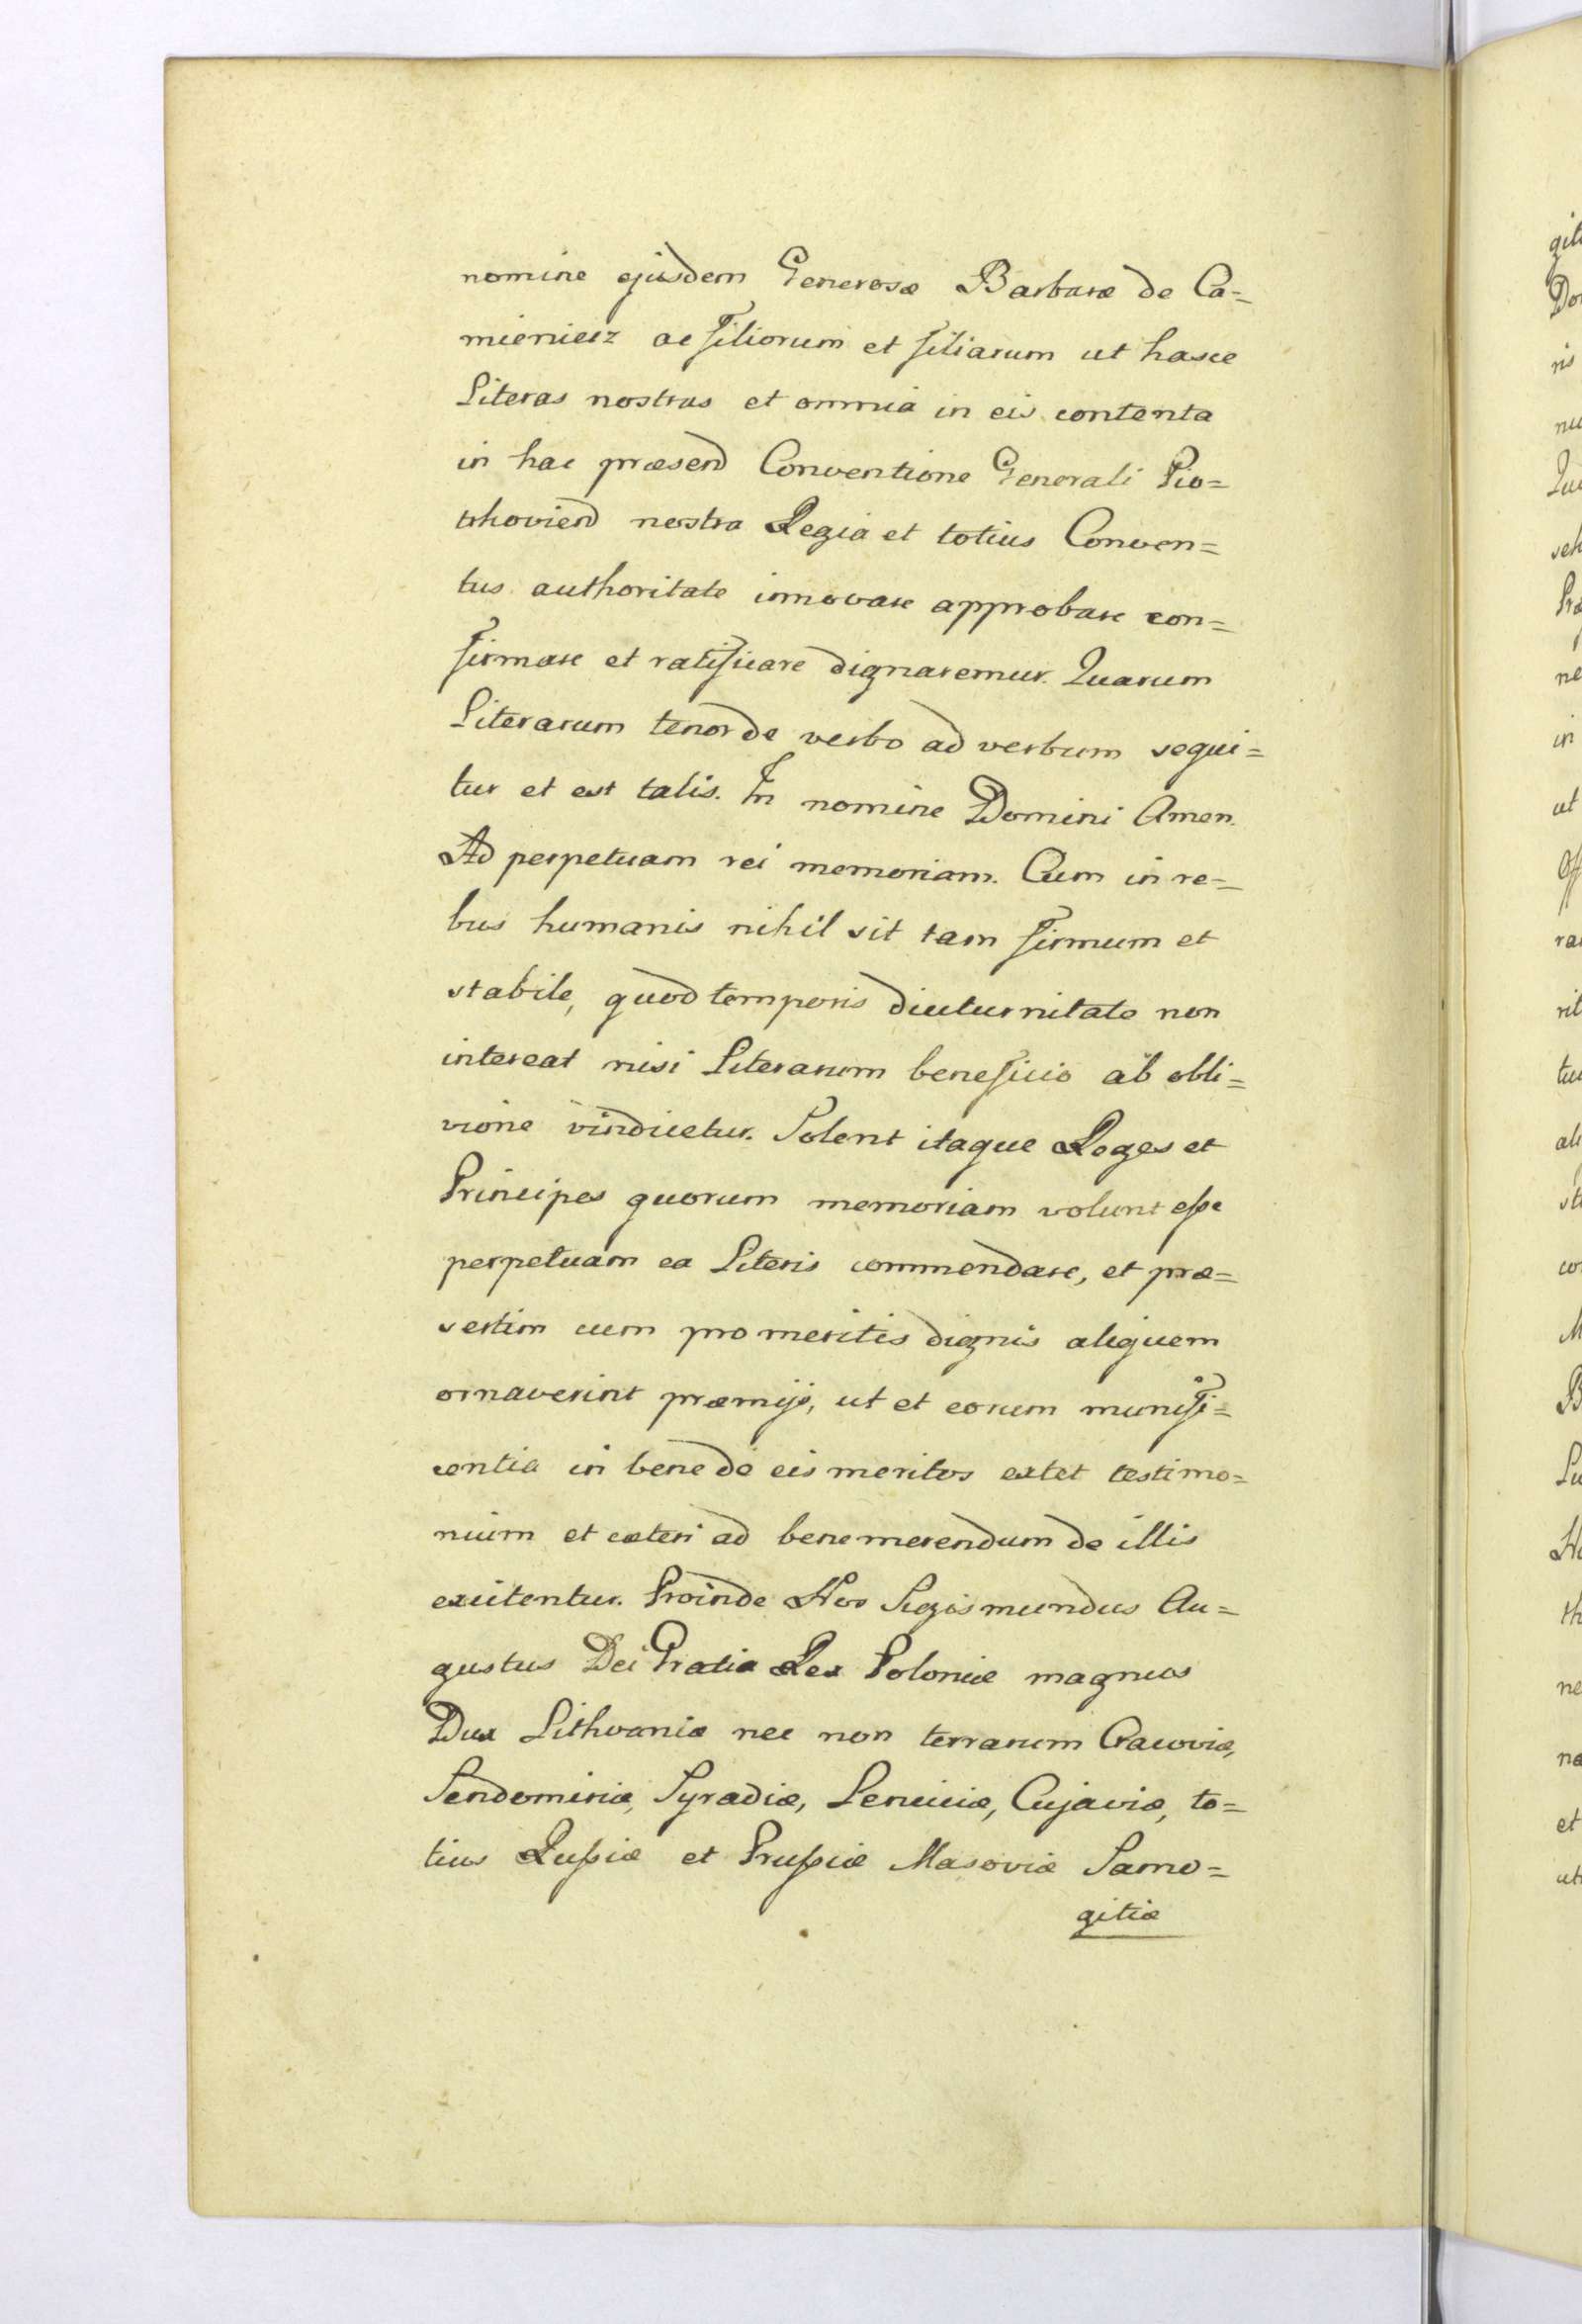 nomine ejusdem Generosæ Barbaræ de Ca=
mieniecz ac filiorum et filiarum ut hasce
Literas nostras et omnia in eis contenta
in hac præsend Conventione Generali Pio=
trkoviend nostra Regia et totius Conven=
tus authoritate innovare approbare con=
firmare et ratificare dignaremur. Quarum
Literarum tenor de verbo ad verbum sequi=
tur et est talis. In nomine Domini Amen.
Ad perpetuam rei memoriam. Cum in re=
bus humanis nihil sit tam firmum et
stabile, quod temporis diuturnitate non
intereat nisi Literarum beneficio ab obli=
vione vindicetur. Solent itaque Reges et
Principes quorum memoriam volunt eſse
perpetuam ea Literis commendare, et præ=
sertim cum pro meritis dignis aliquem
ornaverint præmijs, ut et eorum munifi=
centia in bene de eis meritos extet testimo=
nium et cæteri ad benemerendum de illis
excitentur. Proinde Nos Sigismundus Au=
gustus Dei Gratia Rex Poloniæ magnus
Dux Lithvaniæ nec non terrarum Cracoviæ,
Sendomiriæ, Syradiæ, Lenciciæ, Cujaviæ, to=
tius Ruſsiæ et Pruſsiæ Masoviæ Samo=
gitiæ